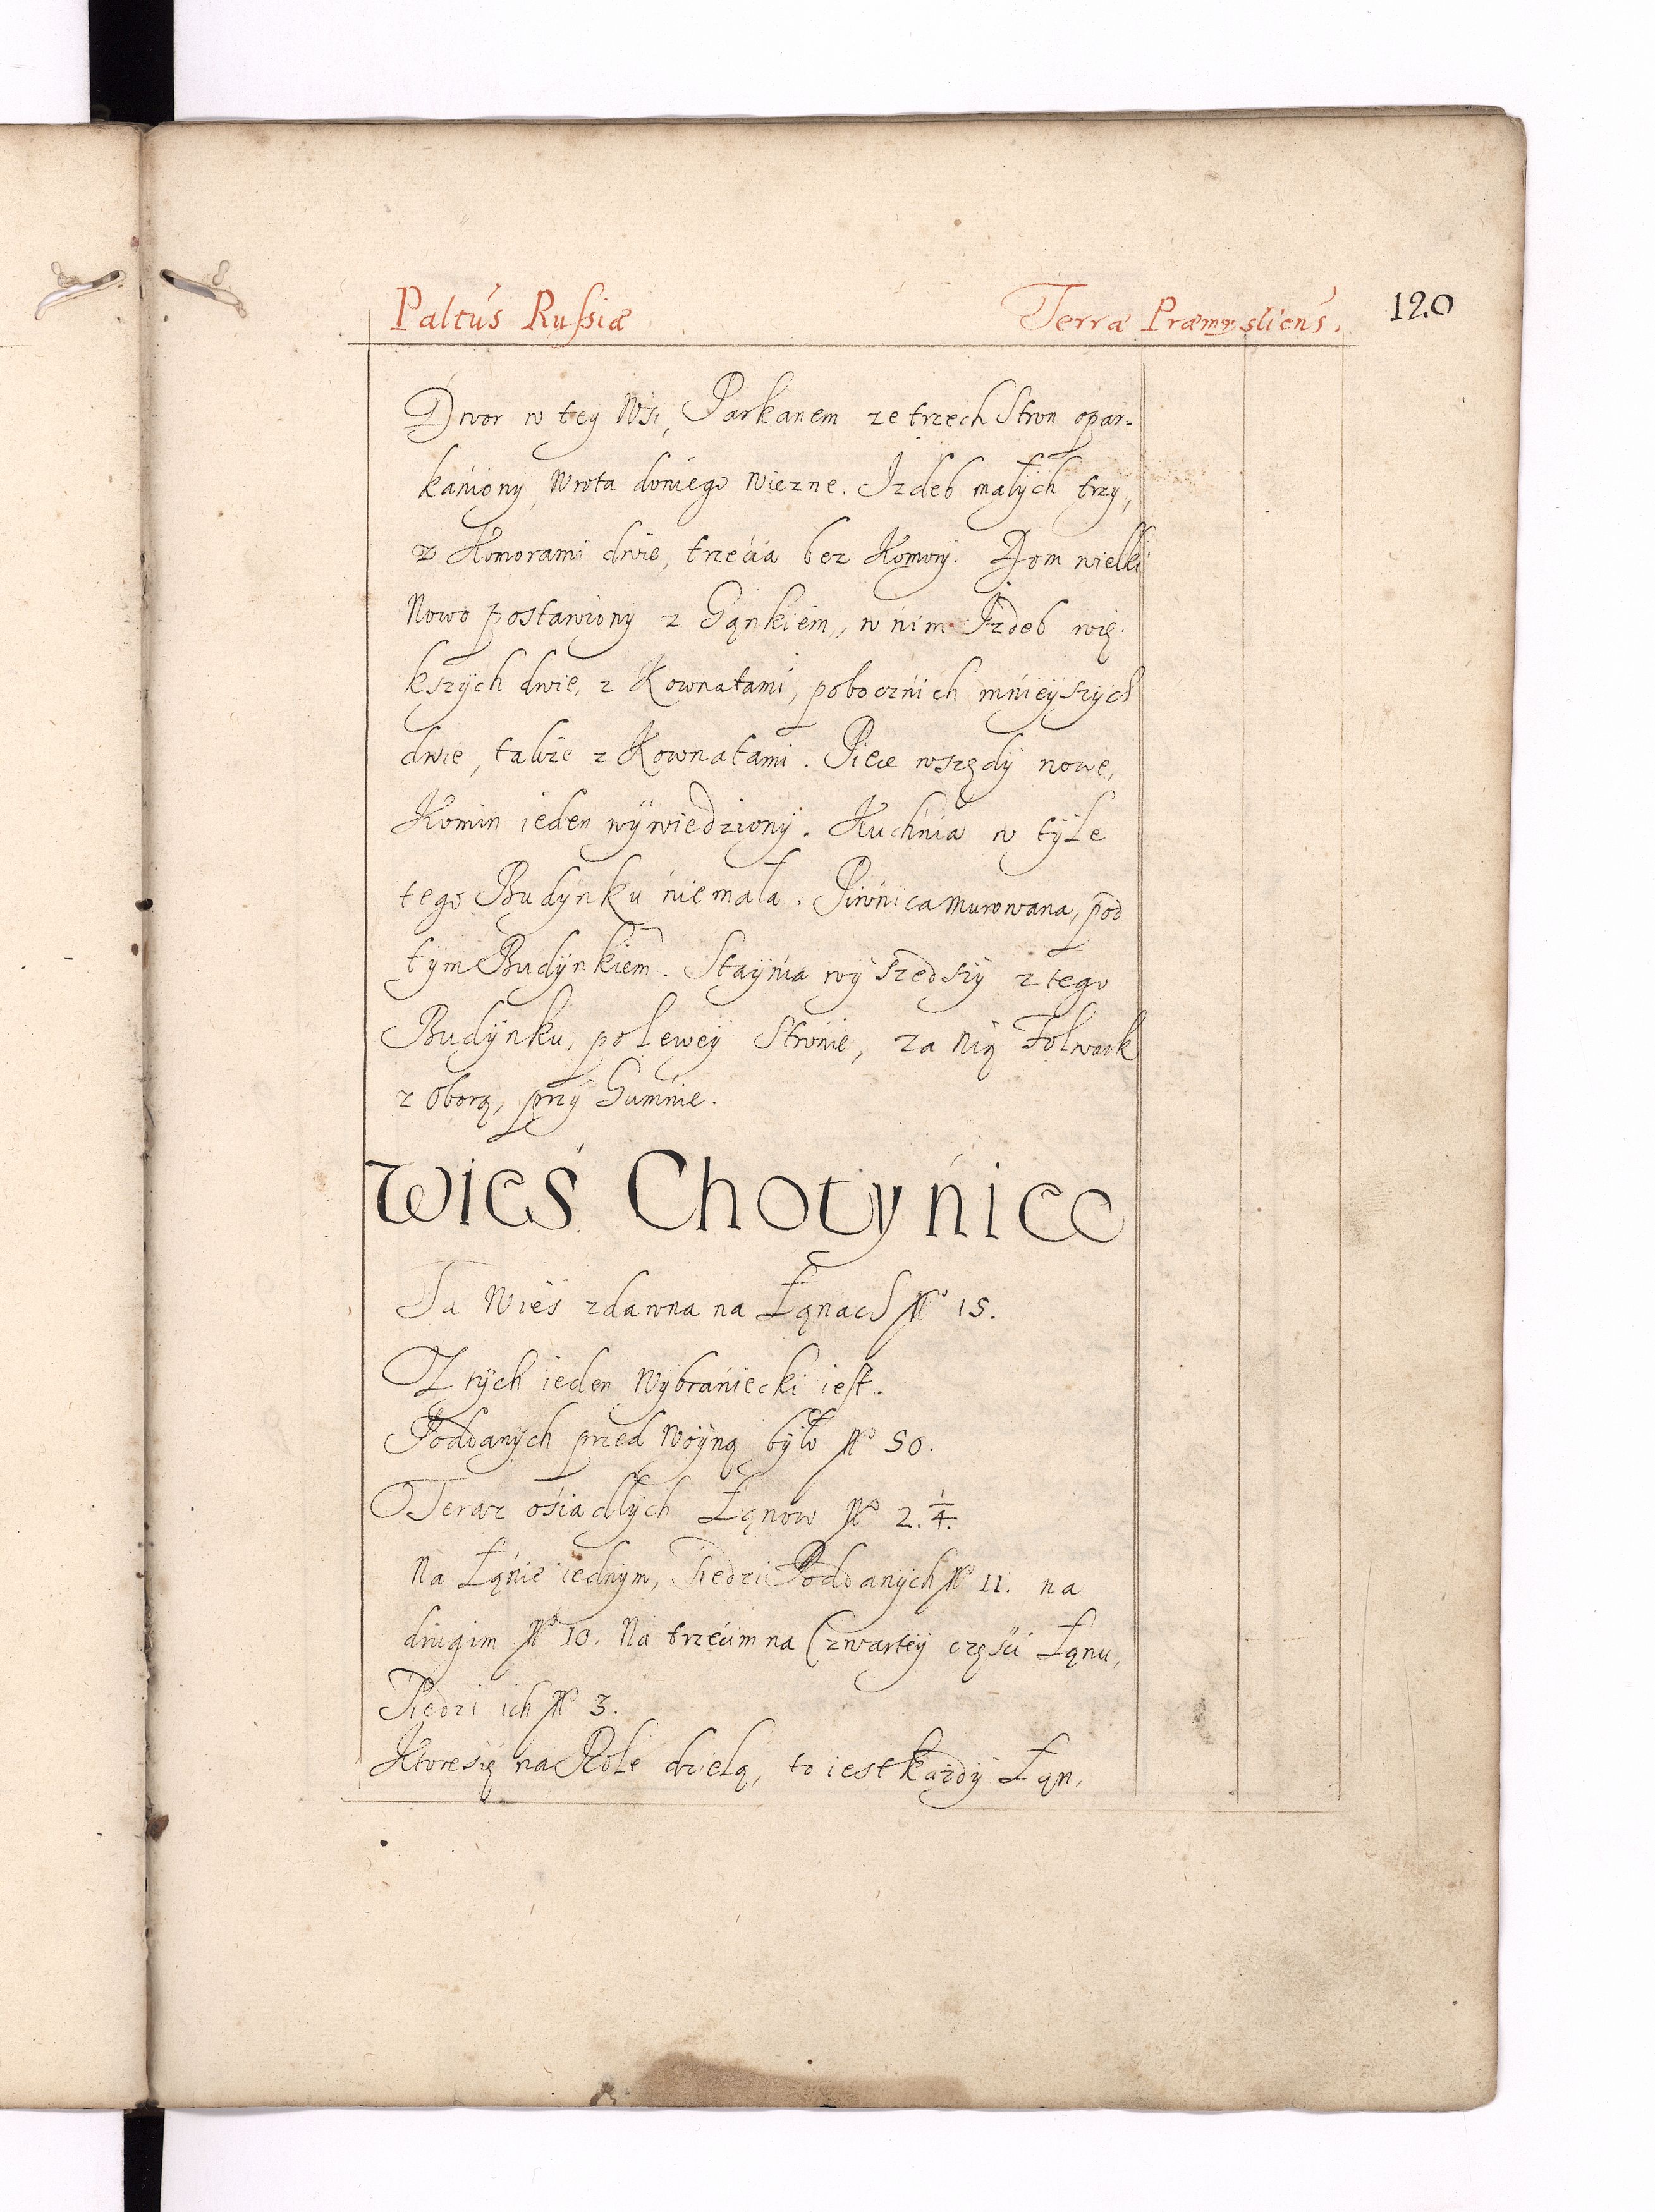 Paltus Russiæ Terræ Præmysliens. 120
Dwor w tey Wsi, Parkanem ze trzech Stron opar-
kaniony, Wrota doniego Wiezne. Izdeb małych trzy,
z Komorami dwie, trzecia bez Komory. Dom wielki
Nowo postawiony z Gąnkiem, w nim Izdeb wię-
kszych dwie, z Kownatami, pobocznich mnieyszych
dwie, także z Kownatami. Piece wszędy nowe,
Komin ieden wywiedziony. Kuchnia w tyle
tego Budynku niemała. Piwnica murowana, pod
tym Budynkiem. Staynia wyszedszy z tego
Budynku, po lewey Stronie, za nią Folwark
z oborą, przy Gumnie.
Wieś Chotyńice
Ta Wieś zdawna na Łąnach No 15.
Z tych ieden Wybraniecki iest.
Poddanych przed Woyną było No 50.
Teraz ośiadłych Łąnow No 2. 1/4.
Na Łąnie iednym, Siedzi Poddanych No 11. na
drugim No 10. Na trzecim na Czwartey części Łąnu,
Siedzi ich No 3.
Ktore się na Role dzielą, to iest każdy Łąn,